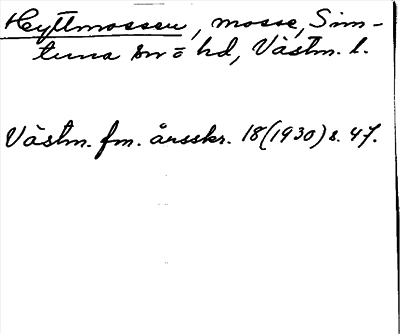 Hyttmossen, mosse, Sim-
tuna sn o hd, Västm. l.
Västm. fm. årsskr. 18 (1930) s. 47.